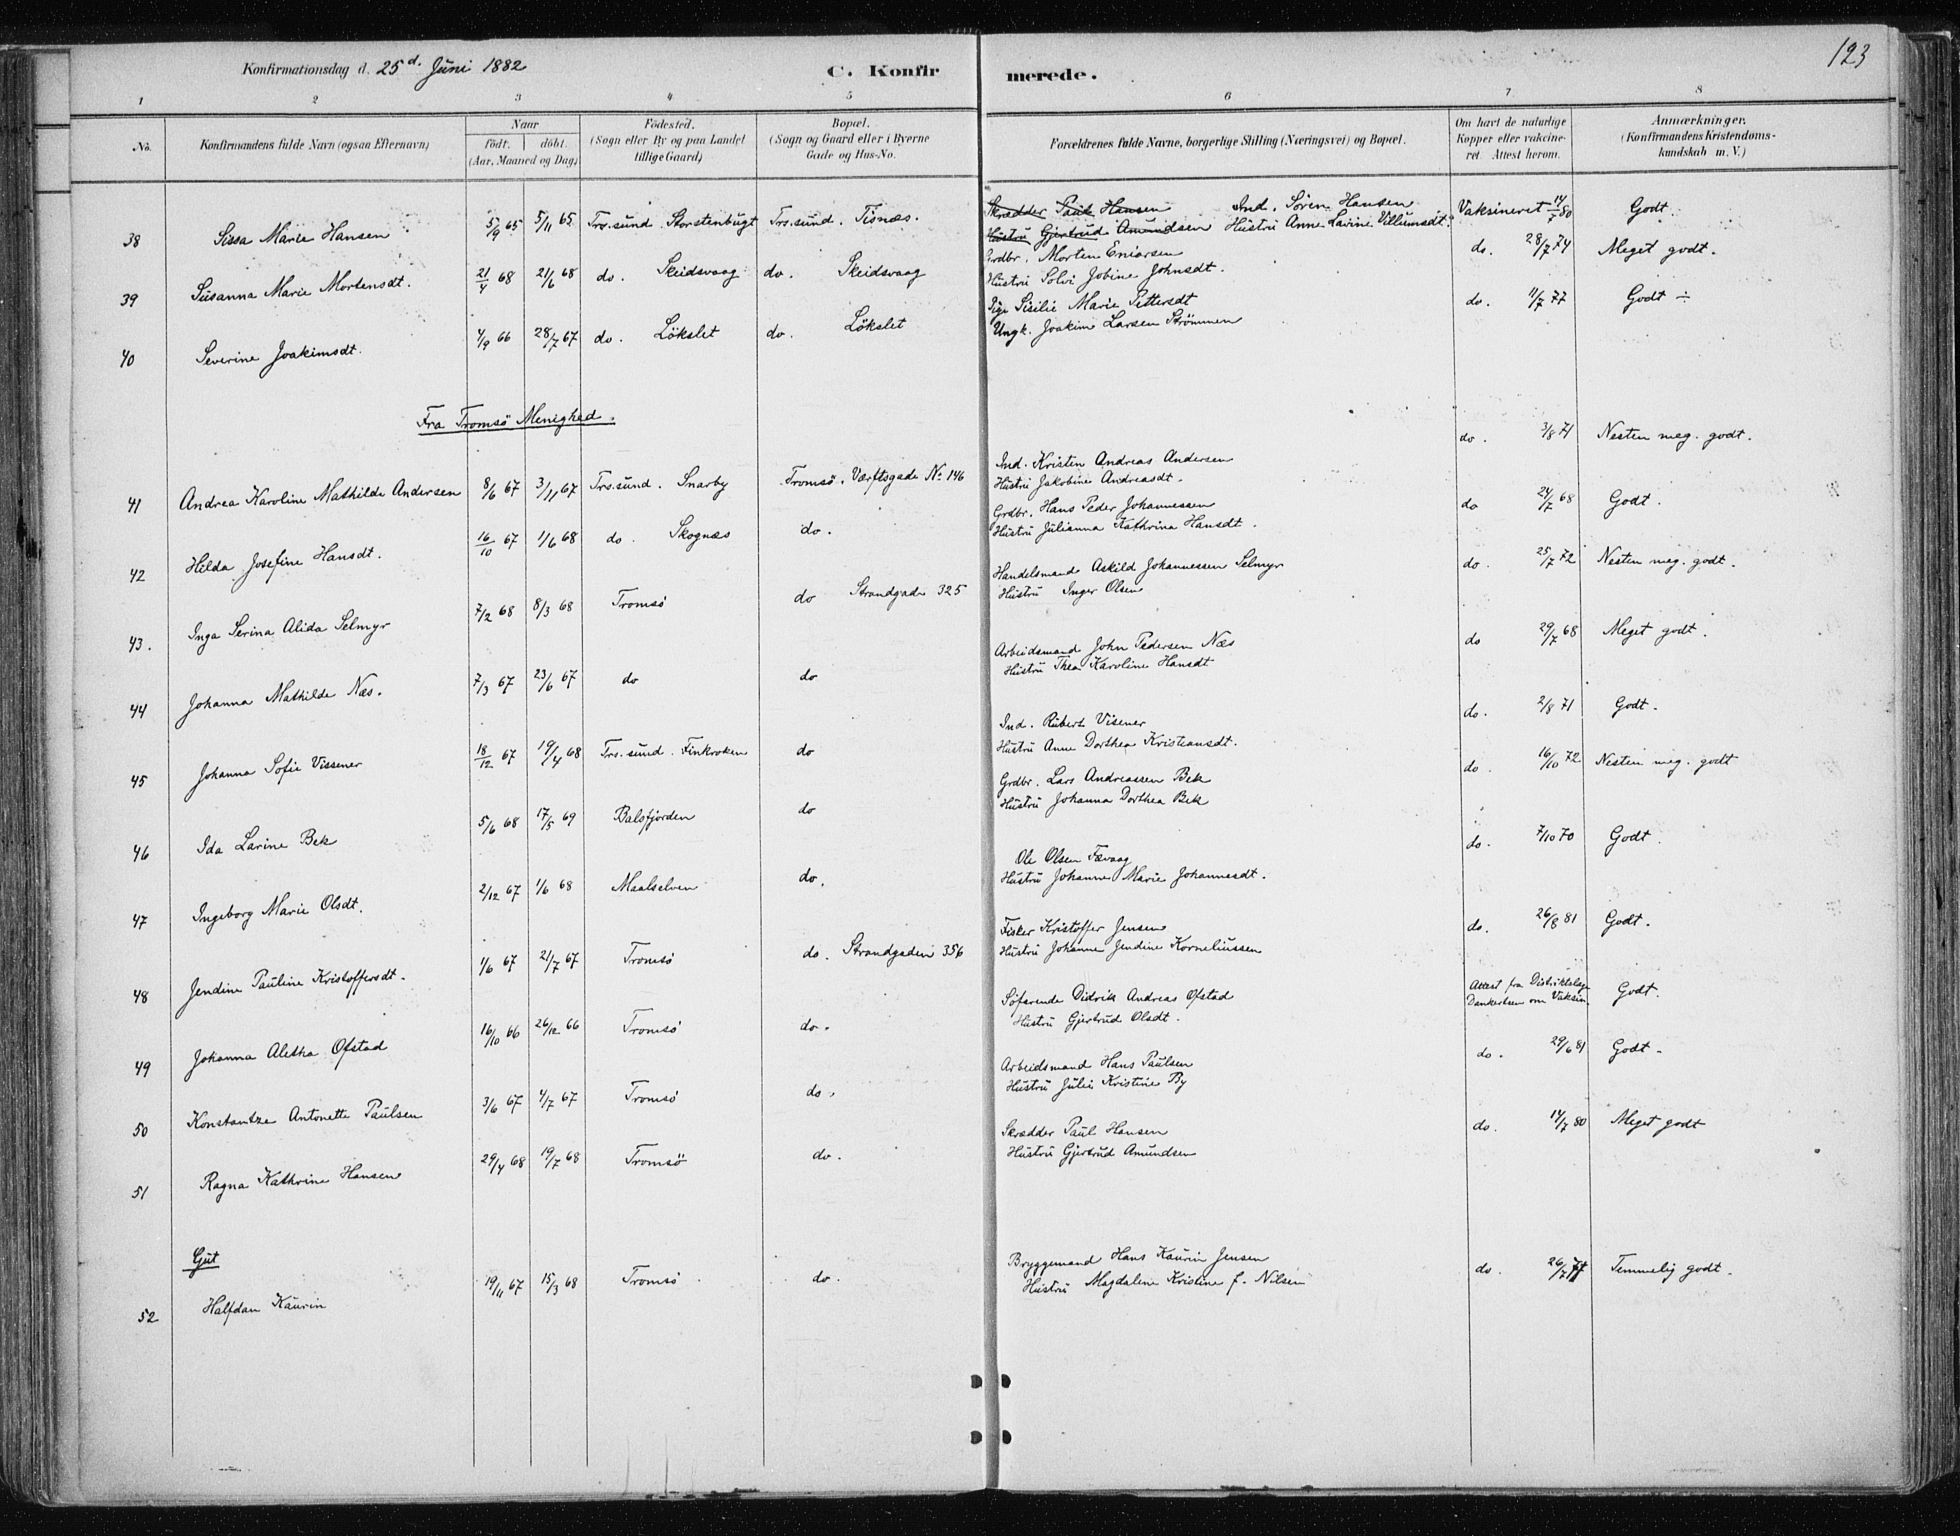 Konfirmationsdag d. 25d. Juni 1882 C. Konfirmerede. 123
1 2 3 4 5 6 7 8
No. Konfirmandens fulde Navn (ogsaa Efternavn) Naar födt. döbt. (Aar, Maaned og Dag) Födested. (Sogn eller By og paa Landet tillige Gaard) Bopæl. (Sogn og Gaard eller i Byerne Gade og Hus-No. Forældrenes fulde Navne, borgerlige Stilling (Næringsvei) og Bopæl. Om havt de naturlige Kopper eller vakcineret. Attest herom. Anmærkninger. (Konfirmandens Kristendomskundskab m. V.)
38 Sissa Marie Hansen 5/9 65 5/11 65 Trs.sund Storstenbugt Trs.sund. Tisnæs. Skrædder Paul Hansen Ind. Sören Hansen Vaksineret 14/7 80 Godt.
Hustru Gjertrud Amundsen Hustru Anne Lavine Villumsdt.
39 Susanna Marie Mortensdt. 21/4 68 21/6 68 do. Skeidsvaag do. Skeidsvaag Grdbr. Morten Eniarsen do. 28/7 74 Meget godt.
Hustru Solvi Jobine Johnsdt.
40 Severine Joakimsdt. 4/9 66 28/7 67 do. Lökslet do. Lökslet Pige Sisilie Marie Pettersdt do. 11/7 77 Godt ÷
Ungk. Joakim Larsen Strömmen
Fra Tromsö Menighed.
41 Andrea Karoline Mathilde Andersen 8/6 67 3/11 67 Trs.sund. Snarby Tromsö. Værftsgade No 146 Ind. Kristen Andreas Andersen do. 3/8 71 Nesten meg. godt.
Hustru Jakobine Andreasdt.
42 Hilda Josefine Hansdt. 16/10 67 1/6 68 do. Skognæs do. Grdbr. Hans Peder Johannessen do 24/7 68 Godt.
Hustru Julianna Kathrina Hansdt.
43. Inga Serina Alida Selmyr 7/2 68 8/3 68 Tromsö do Strandgade 325 Handelsmand Askild Johannessen Selmyr do. 25/7 72 Nesten meg. godt.
Hustru Inger Olsen
44 Johanna Mathilde Næs. 7/3 67 23/6 67 do do Arbeidsmand John Pedersen Næs do 29/7 68 Meget godt.
Hustru Thea Karoline Hansdt
45 Johanna Sofie Vissener 18/12 67 19/4 68 Trs.sund. Finkroken do Ind. Rubert Visener do. 2/8 71 Godt.
Hustru Anne Dorthea Kristiansdt.
46 Ida Larine Bek 5/6 68 17/5 69 Balsfjorden do Grdbr. Lars Andreassen Bek do. 16/10 72 Nesten meg. godt
Hustru Johanna Dorthea Bek
47 Ingeborg Marie Olsdt. 2/12 67 1/6 68 Maalselven do. Ole Olsen Fævaag do. 7/10 70 Godt.
Hustru Johanne Marie Johannesdt.
48 Jendine Pauline Kristoffersdt. 1/6 67 21/7 67 Tromsö do. Strandgaden 356 Fisker Kristoffer Jensen do. 26/8 81 Godt.
Hustru Johanne Jendine Korneliussen
49 Johanna Aletha Ofstad 16/10 66 26/12 66 Tromsö do. Söfarende Didrik Andreas Ofstad Attest fra Distriktslæge Godt.
Hustru Gjertrud Olsdt. Dankertsen om Vaksin.
50 Konstantze Antonette Paulsen 3/6 67 4/7 67 Tromsö do. Arbeidsmand Hans Paulsen do. 29/6 81 Godt.
Hustru Julie Kristine By
51 Ragna Kathrine Hansen 29/4 68 19/7 68 Tromsö do. Skrædder Paul Hansen do. 14/7 80 Meget godt
Hustru Gjertrud Amundsen
Gut
52 Halfdan Kaurin 19/11 67 15/3 68 Tromsö do. Bryggemand Hans Kaurin Jensen do. 26/7 77 Temmelig godt.
Hustru Magdalene Kristine f. Nilsen